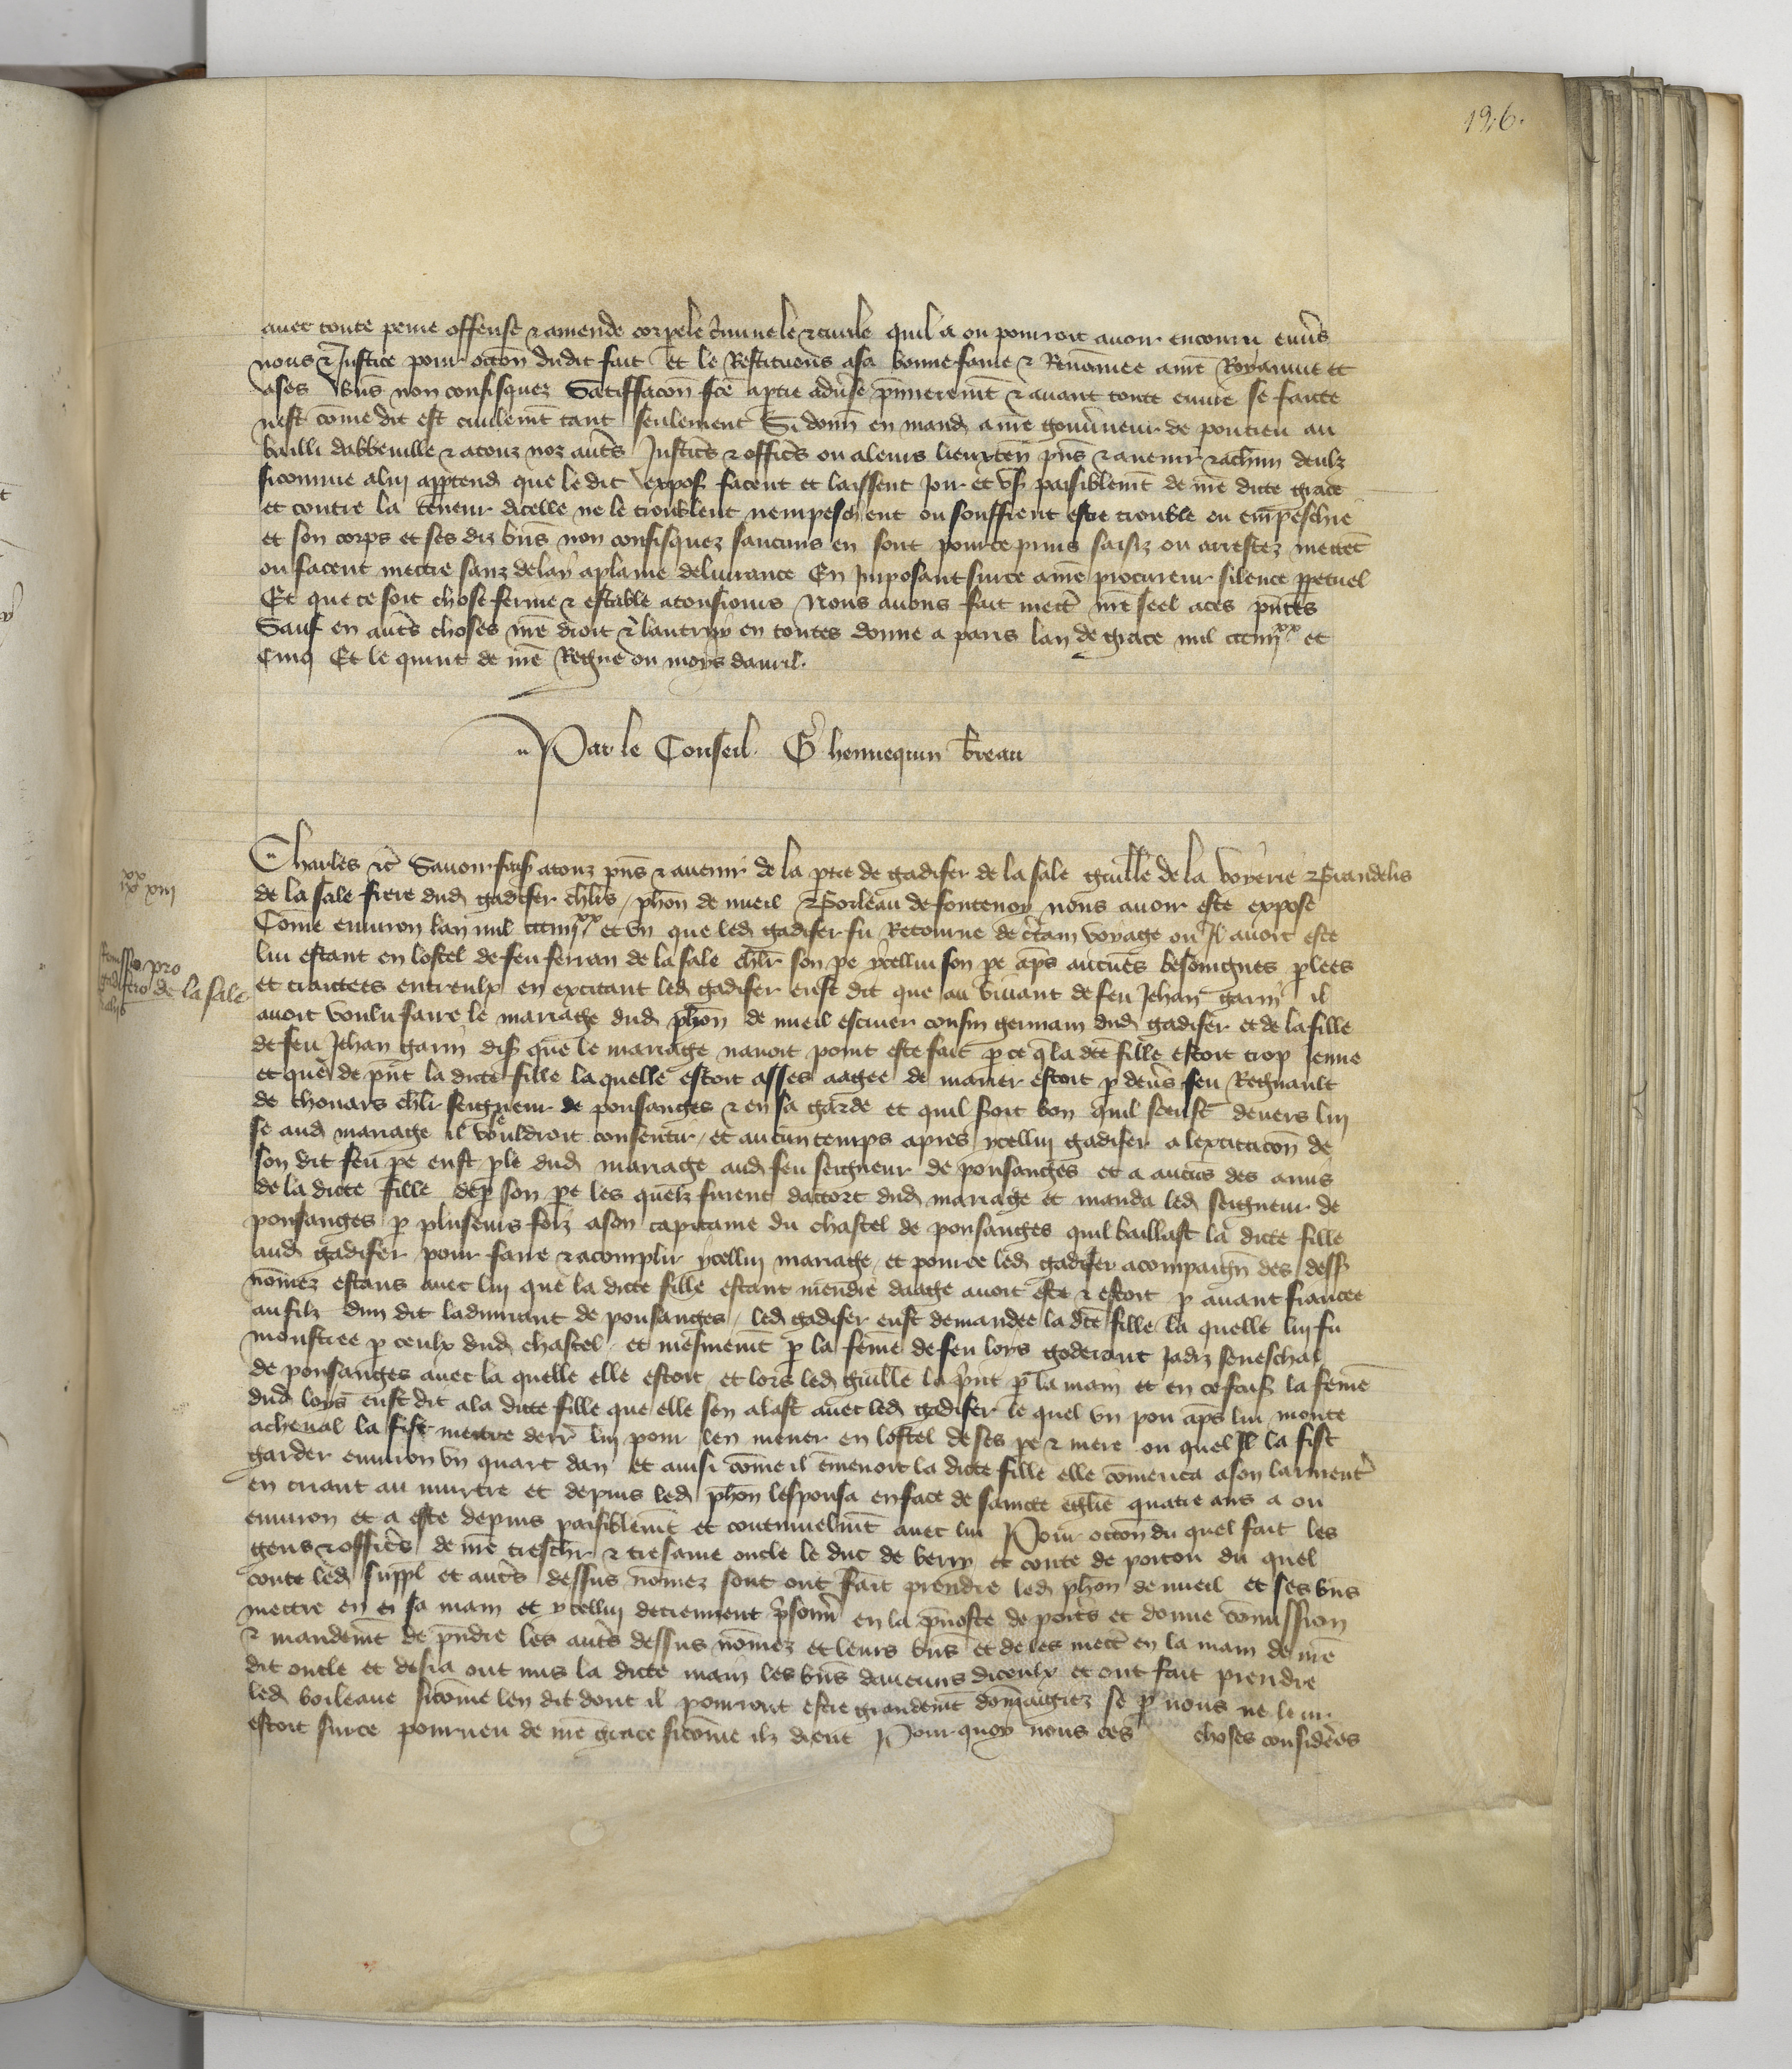 126.
avec toute peine offense & amende corpele c'minele & civile quil a ou pourroit avoir encouru envs
nous & Justice pour occōn dudit fait et le Restituons a sa bonne fame & Renōmee a mē Royaume et
a ses bn̄s non confisquez Satiffacōn fcē a ptie advse p̄mierem̄t & avant toute euvre se faicte
nest cōme dit est civilem̄t tant seulement Si donn̄ en mand a mē gouvneur de pontieu au
bailli dabbeville & a touz noz aut's Justic's & offic's ou a leurs lieuxten̄ pn̄s & avenir & a ch̄un deulz
sicomme a lui apptend que le dit expos facent et laissent Joir et us paisiblem̄t de mē dicte grace
et contre la teneur dicelle ne le troublent nempeschent ou seuffrent estre trouble ou empeschie
et son corps et ses diz bn̄s non confisquez saucuns en sont pour ce prins saisiz ou arrestez mettēt
ou facent mettre sanz delay a plaine delivrance En Imposant sur ce a mē procureur silence ppetuel
Et que ce soit chose ferme & estable a tousiours Nous avons fait mectr̄ mē seel a ces pn̄tes
Sauf en aut's choses mē droit & lautruy en toutes donne a paris lan de grace mil ccciiijxx et
Cinq Et le quint de mē Regne ou moys davril.
Par le Conseil. G hennequin breau
Charles &c̄ Savoir fais a touz pn̄s & avenir de la ptie de gadifer de la sale guille de la voyerie & Briandelis
de la sale frere dud gadifer chlrs / phōn de nueil & Boileau de fontenoy nous avoir este expose
Cōme environ lan mil ccciiijxx et un que led gadifer fu Retourne de c'tain voyage ou Il avoit este
lui estant en lostel de feu ferran de la sale chlr son pe ycellui son pe ap's aucunes besoingnes plees
et traictees entreulx en excitant led gadifer eust dit que au vivant de feu Jehan garin il
avoit voulu faire le mariage dud phōn de nueil escuier cousin germain dud gadifer et de la fille
de feu Jehan garin dis que le mariage navoit point este fait p ce q̄ la dcē fille estoit trop Jeune
et que de pn̄t la dicte fille la quelle estoit asses aagee de marier estoit p dev's feu Regnault
de thouars chlr seigneur de pousauges & en sa garde et quil seroit bon quil sceust devers lui
se aud mariage il vouldroit consentir / et aucun temps apres ycellui gadifer a lexcitacōn de
son dit feu pe eust ple dud mariage aud feu seigneur de pousauges et a aucūs des amis
de la dicte fille dep son pe les quelz furent dacort dud mariage et manda led seigneur de
pousauges p plusieurs foiz a son capitaine du chastel de pousauges quil baillast la dicte fille
aud gadifer pour faire & acomplir ycellui mariage / et pour ce led gadifer acompaign̄ des dess
nōmez estans avec lui que la dicte fille estant mendre daage avoit este & estoit p avant fiancee
au filz dun dit ladmirant de pousauges / led gadifer eust demandee la dcē fille la quelle lui fu
monstree p ceulx dud chastel / et mesmem̄t p la fēme de feu loys goderant Jadiz seneschal
de pousauges avec la quelle elle estoit et lors led guille la p̄nt p la main et en ce fais la fēme
dud loys eust dit a la dicte fille que elle sen alast avec led gadifer le quel un pou ap's lui monte
a cheval la fist mettre derr̄ lui pour len mener en lostel de ses pe & mere ou quel Il la fist
garder environ un quart dan et ainsi cōme il ēmenoit la dicte fille elle cōmenca a soy larment'
en criant au murtre et depuis led phōn lespousa en face de saincte eglise quatre ans a ou
environ et a este depuis paisiblem̄t et continuelm̄t avec lui Pour occōn du quel fait les
gens & offic's de mē treschr & tresame oncle le duc de berry et conte de poitou du quel
conte led suppl et aut's dessus nōmez sont ont fait prendre led phōn de nueil et ses bn̄s
mettre en et sa main et ycellui detiennent p̄sonn̄ en la p̄voste de poit's et donne cōmission
& mandem̄t de p̄ndre les aut's dessus nōmez et leurs bn̄s et de les mectr̄ en la main de mē
dit oncle et desia ont mis la dicte main les bn̄s daucuns diceulx et ont fait prendre
led boileaue sicōme len dit dont il pourroit estre grandem̄t dōmaigiez se p nous ne leur
estoit sur ce pourveu de mē grace sicōme ilz dient Pour quoy nous ces choses considerēs
xx
ix xiij
Remissio pro
gadifero de la sale